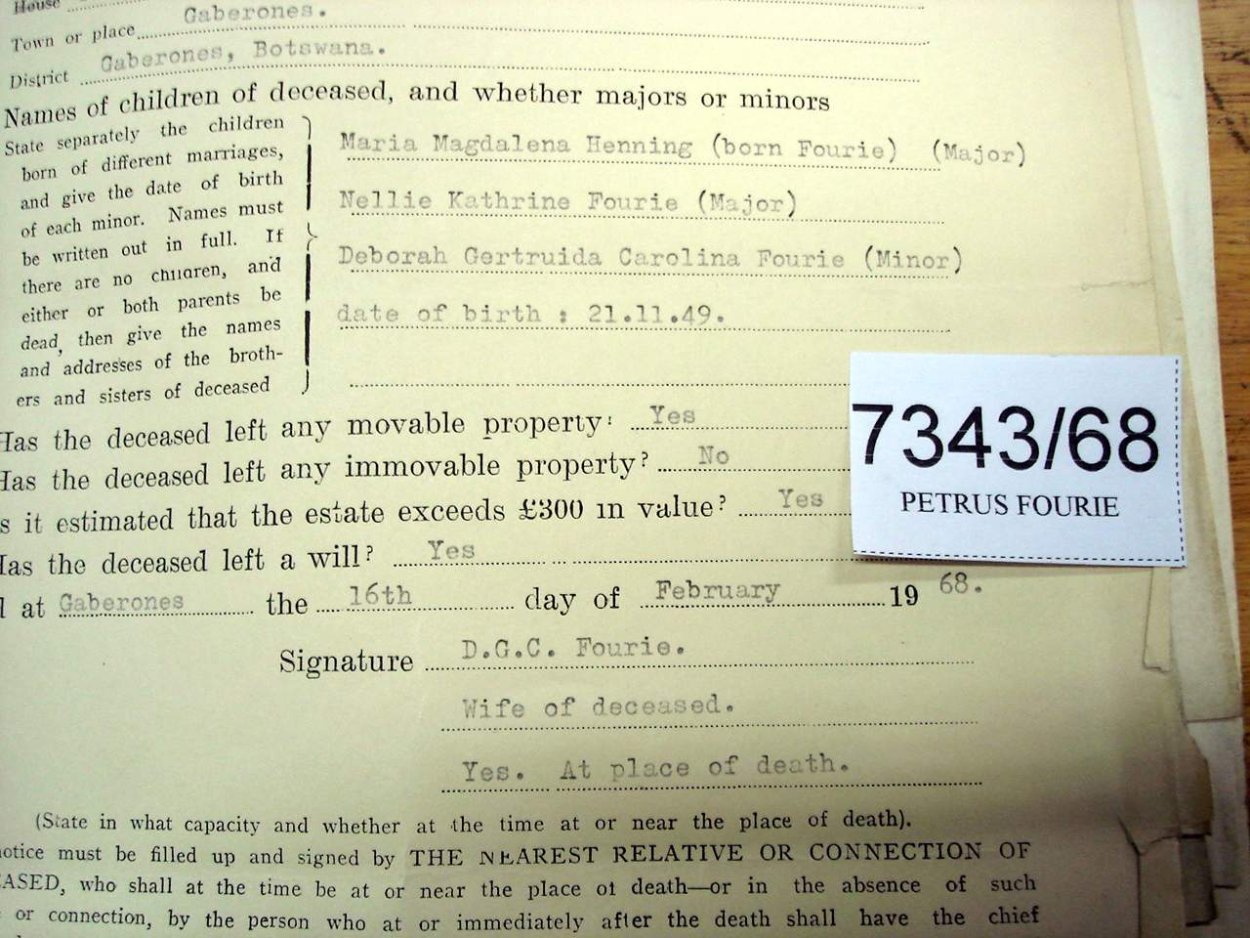 House
Town or place Gaberones.
District Gaberones, Botswana.
Names of children of deceased, and whether majors or minors
State separately the children
born of different marriages,
and give the date of birth
of each minor. Names must
be written out in full. If
there are no children, and
either or both parents be
dead, then give the names
and addresses of the broth-
ers and sisters of deceased
Maria Magdalena Henning (born Fourie) (Major)
Nellie Kathrine Fourie (Major)
Deborah Gertruida Carolina Fourie (Minor)
date of birth : 21.11.49.
Has the deceased left any movable property: Yes
Has the deceased left any immovable property? No
s it estimated that the estate exceeds £300 in value? Yes
Has the deceased left a will? Yes
7343/68
PETRUS FOURIE
d at Gaberones the 16th day of February 19 68.
Signature D.G.C. Fourie.
Wife of deceased.
Yes. At place of death.
(State in what capacity and whether at the time at or near the place of death).
notice must be filled up and signed by THE NEAREST RELATIVE OR CONNECTION OF
EASED, who shall at the time be at or near the place of death—or in the absence of such
or connection, by the person who at or immediately after the death shall have the chief